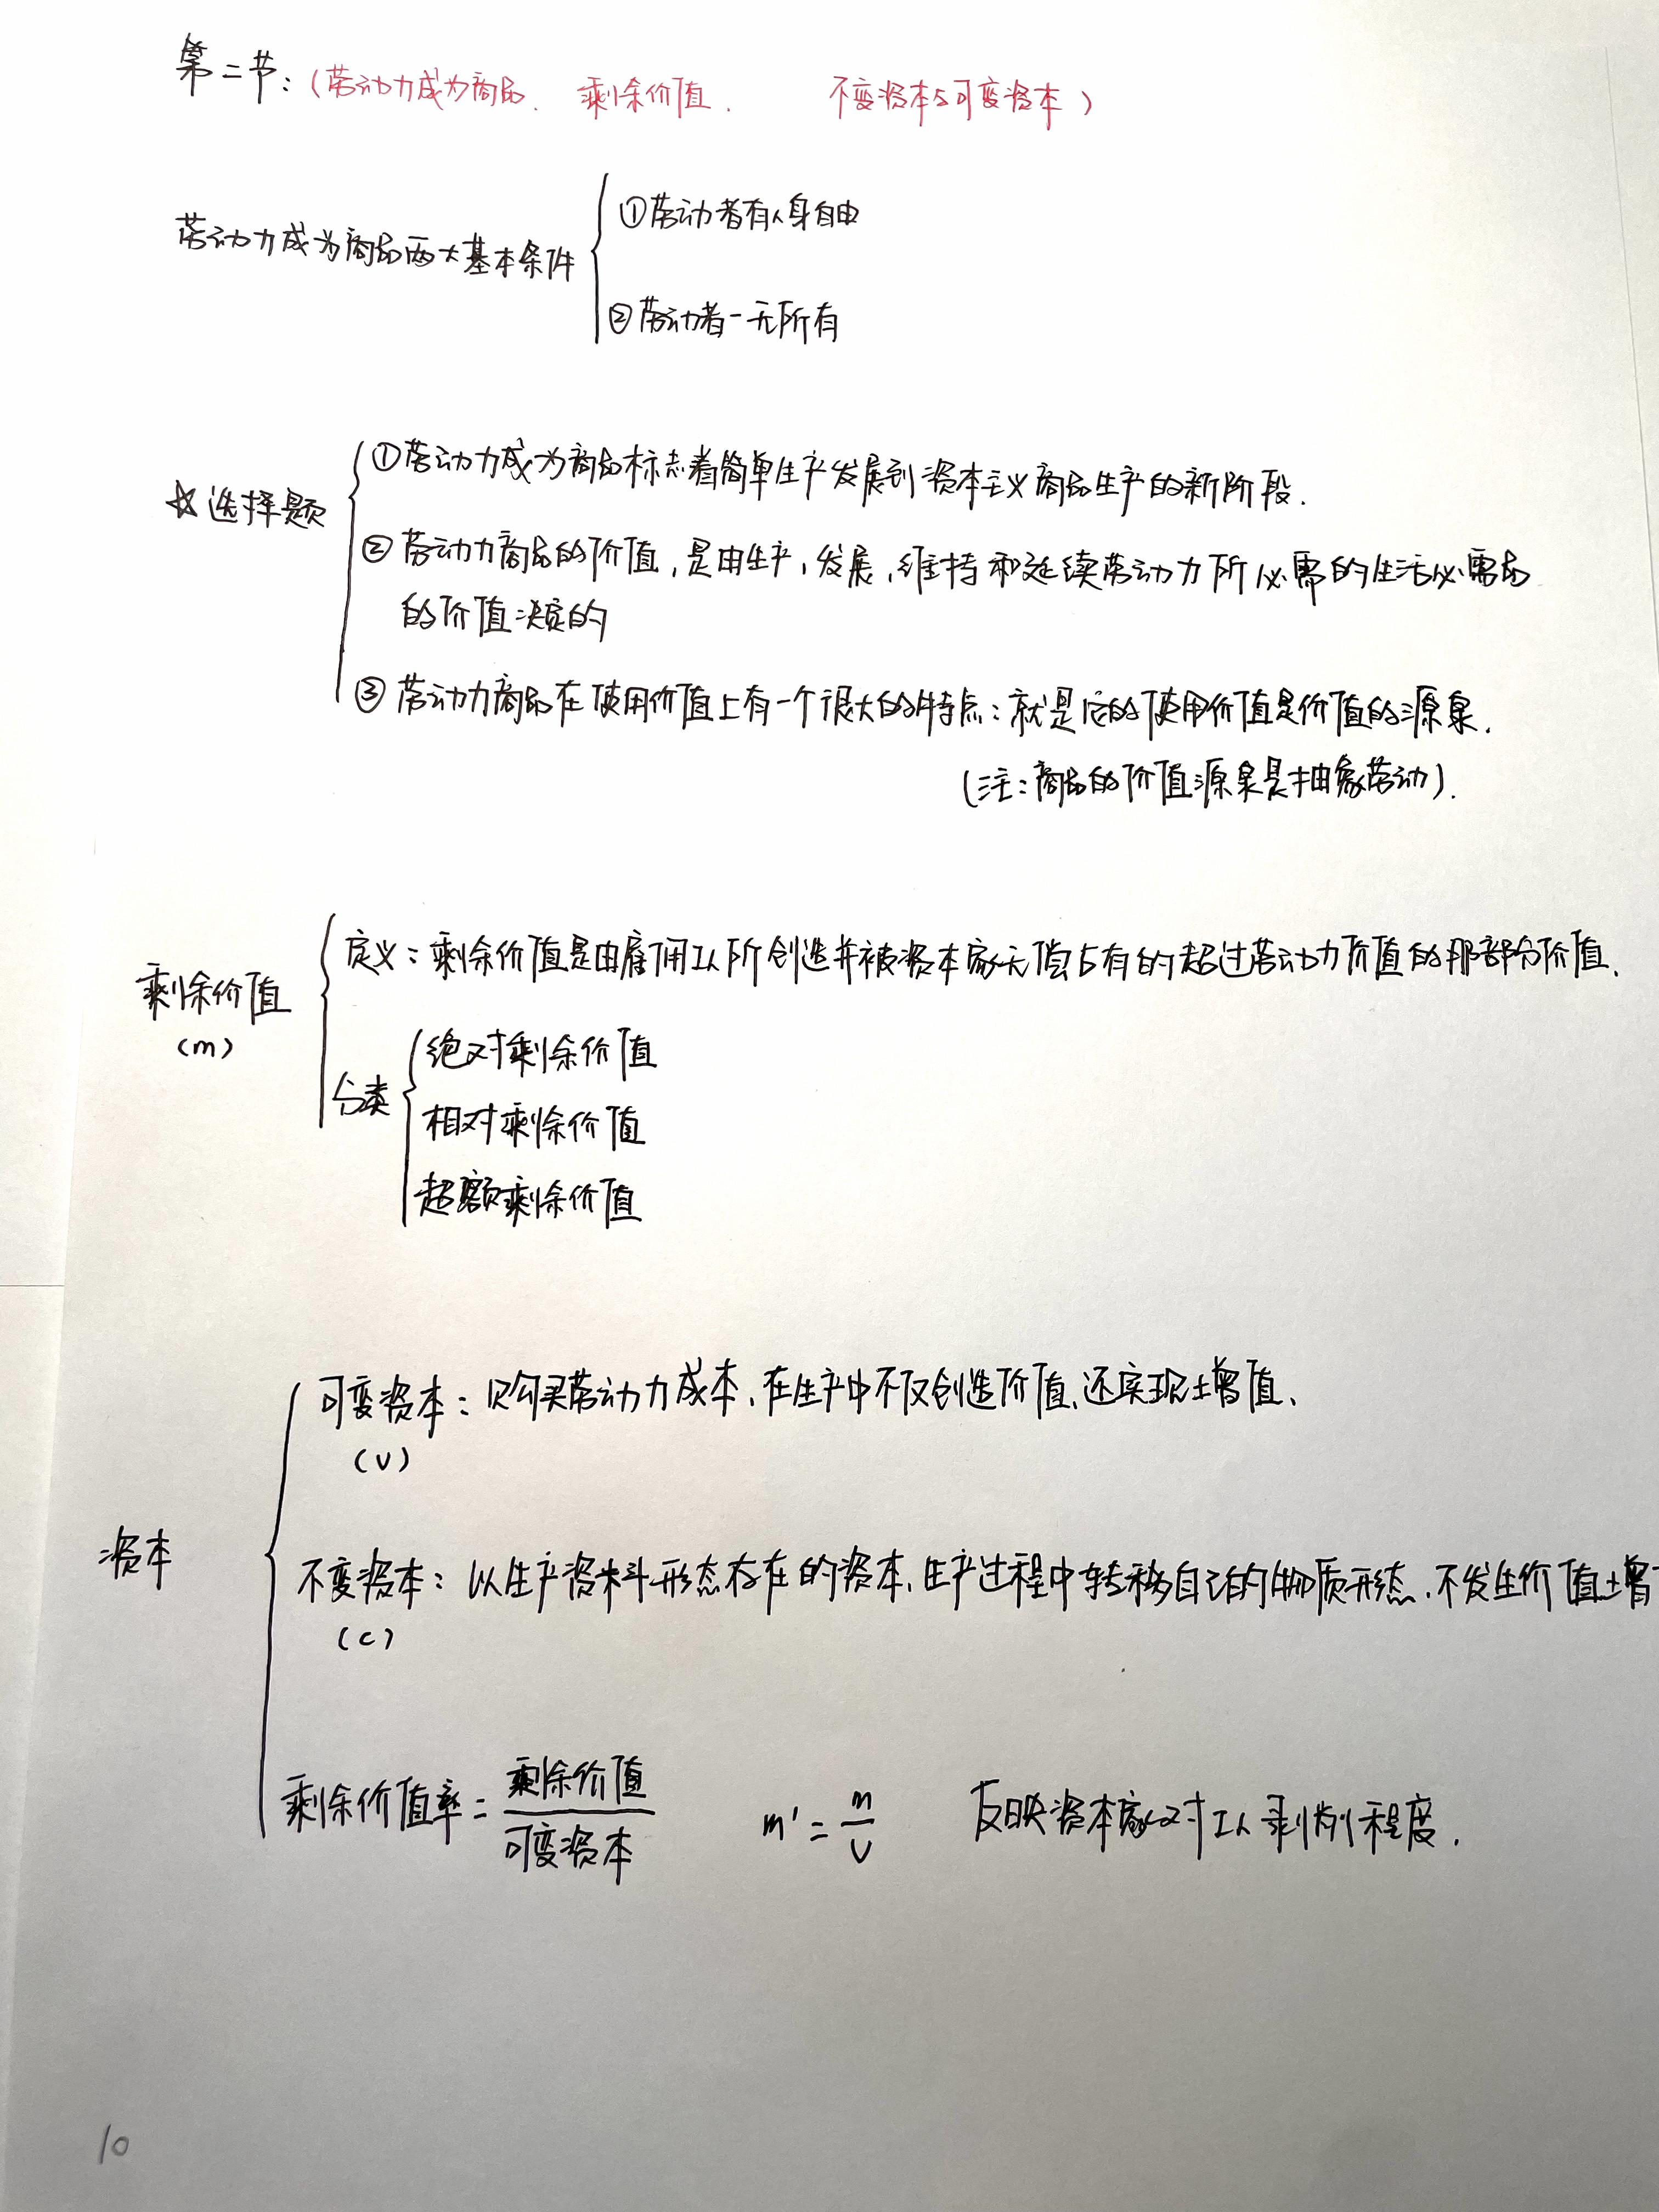 第二节：（劳动力成为商品、 剩余价值、 不变资本与可变资本）
劳动力成为商品两大基本条件
①劳动者有人身自由
②劳动者一无所有
☆选择题
①劳动力成为商品标志着简单生产发展到资本主义商品生产的新阶段.
②劳动力商品的价值，是由生产，发展，维持和延续劳动力所必需的生活必需品
的价值决定的
③劳动力商品在使用价值上有一个很大的特点：就是它的使用价值是价值的源泉.
（注：商品的价值源泉是抽象劳动）.
剩余价值
（m）
定义：剩余价值是由雇佣工人所创造并被资本家无偿占有的超过劳动力价值的那部分价值.
分类
绝对剩余价值
相对剩余价值
超额剩余价值
资本
可变资本：只购买劳动力成本、在生产中不仅创造价值、还实现增值、
（v）
不变资本：以生产资料形态存在的资本、生产过程中转移自己的物质形态、不发生价值增
（c）
剩余价值率=剩余价值/可变资本 m'=m/v 反映资本家对工人剥削程度.
10